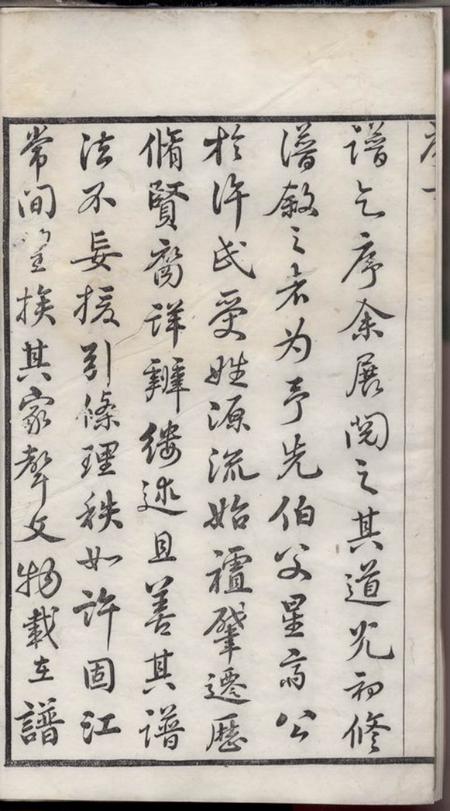 譜乞序余展閱之其道光初修
譜叙之者为予先伯父星斋公
於许氏受姓源流始禋肇遷歷
脩賢裔详辯缕述且善其譜
法不妄援引條理秩如許固江
常间望族其家聲文物載在譜